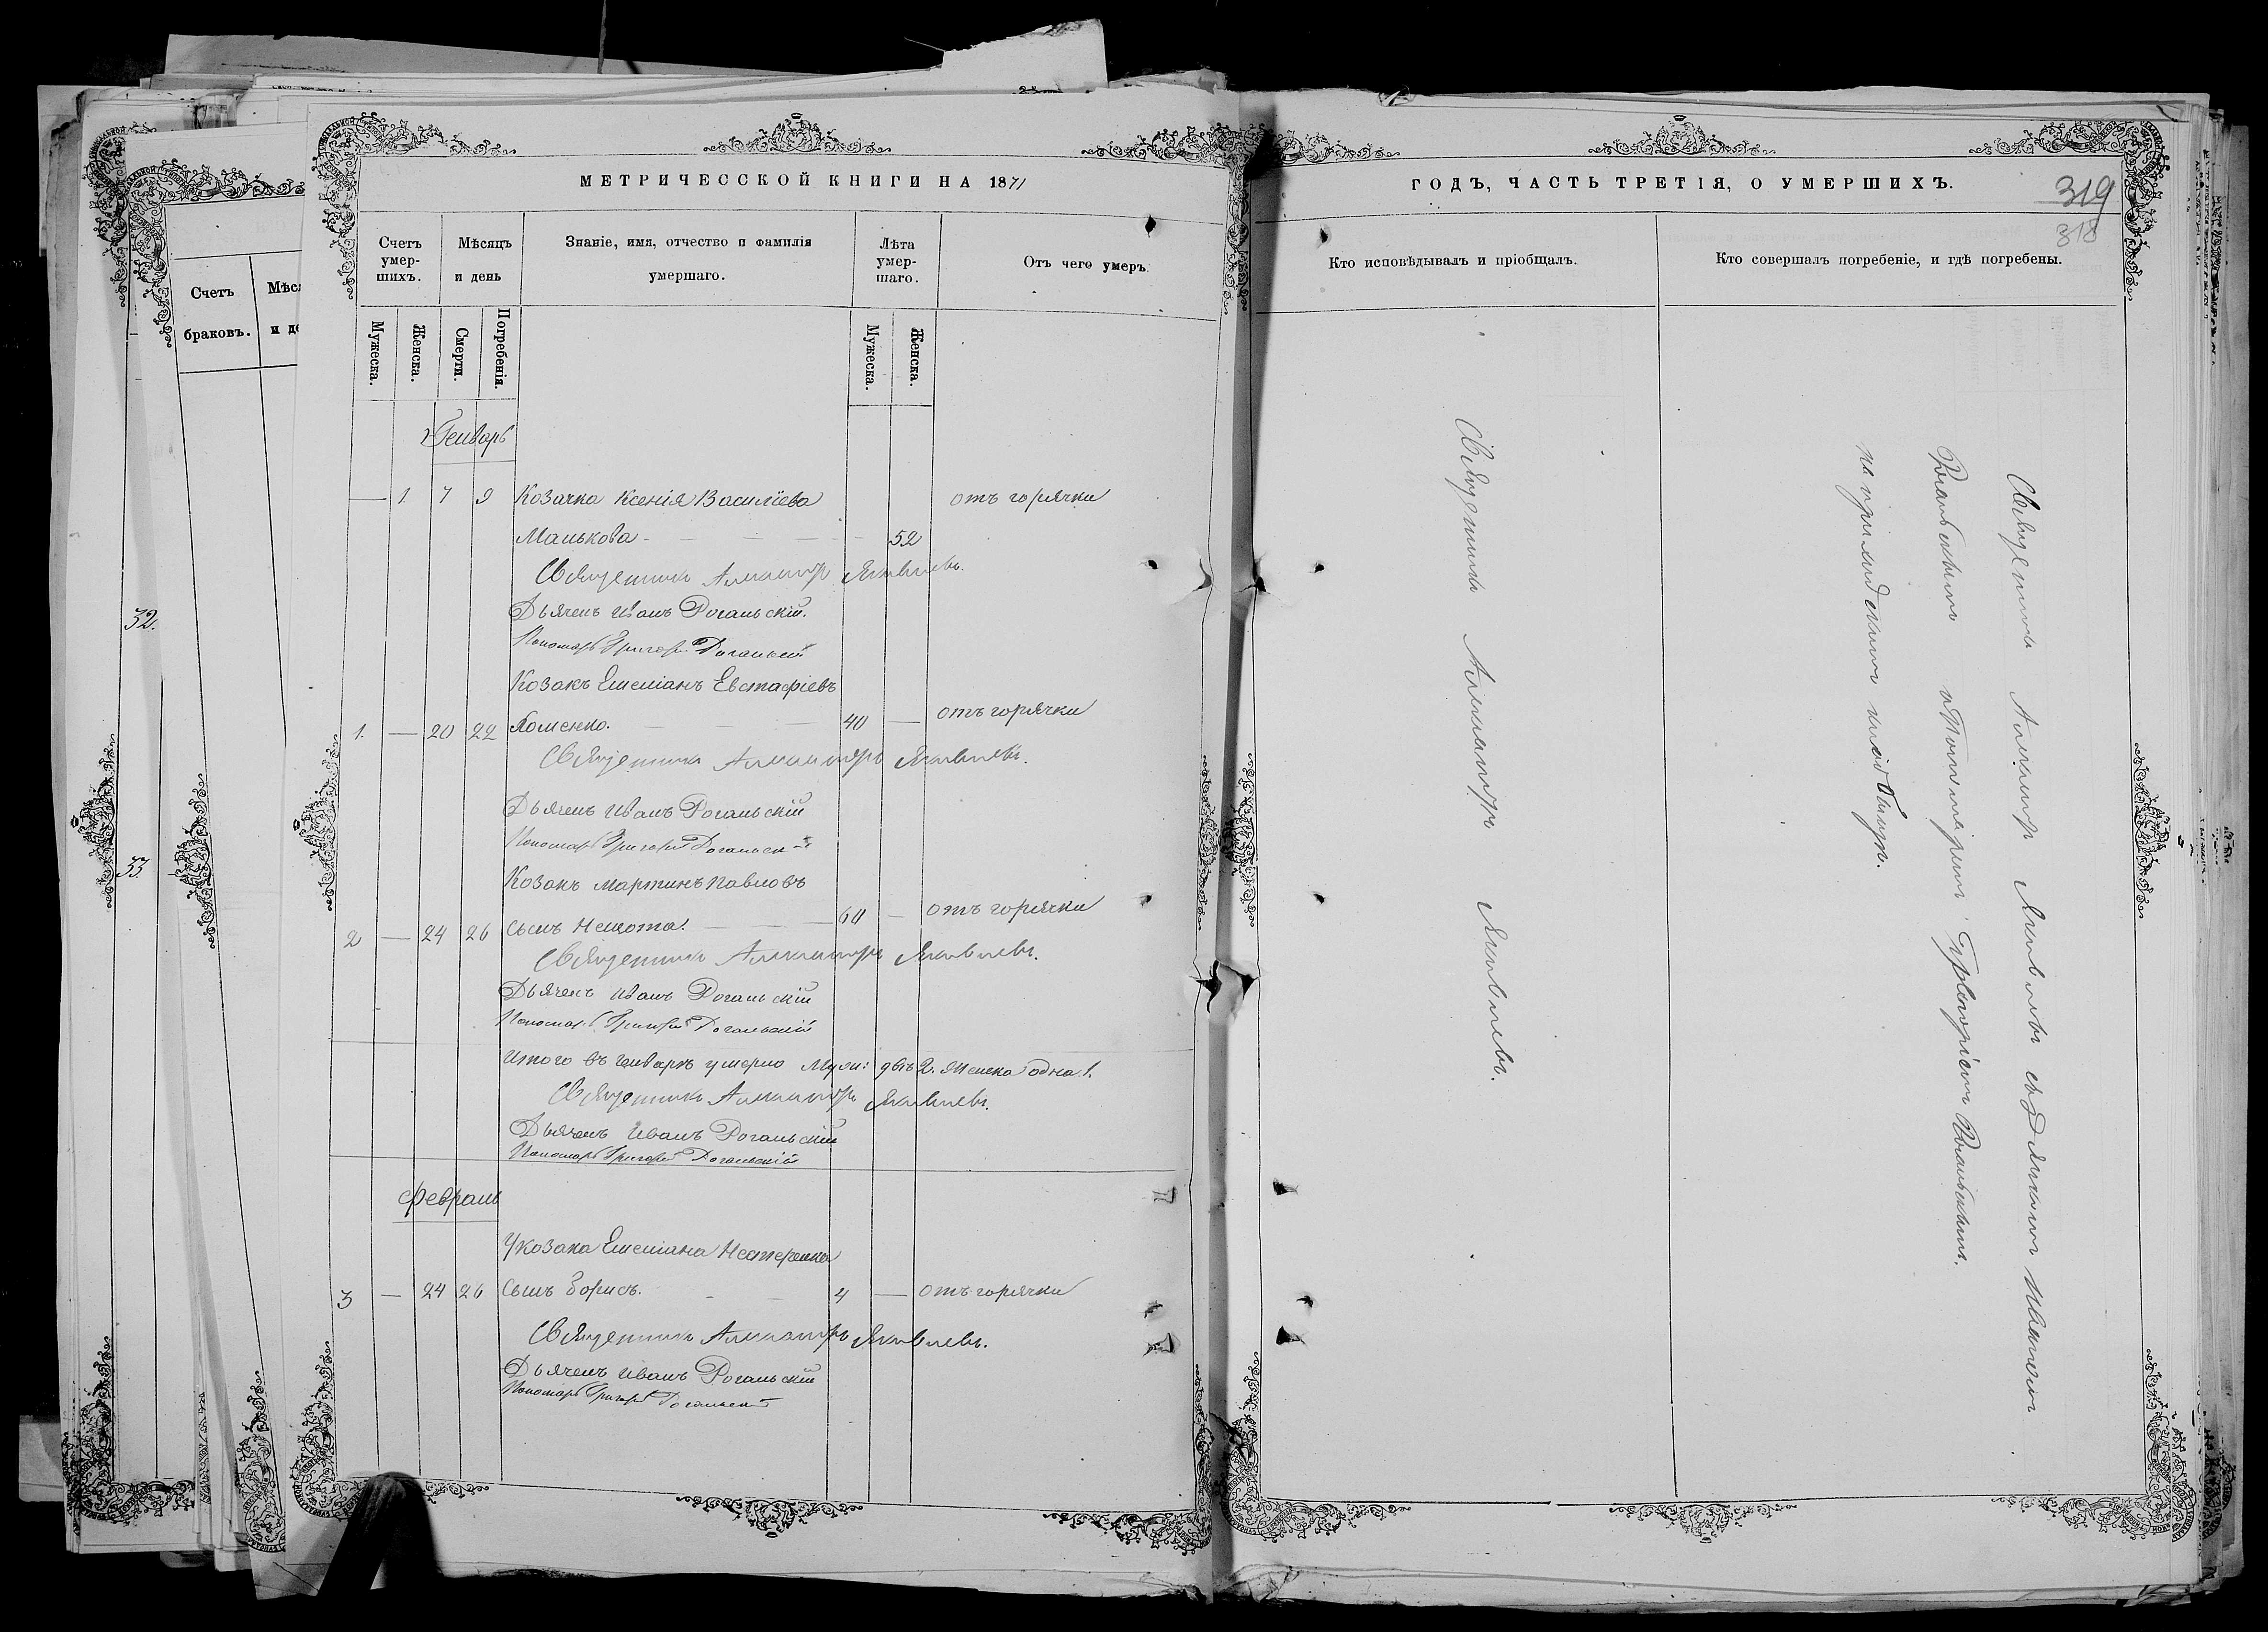 МЕТРИЧЕССКОЙ КНИГИ НА 1871
Счетъ умер-шихъ.
Мѣсяцъ и день
Знаніе, имя, отчество и фамилія умершаго.
Лѣта умер-шаго.
Отъ чего умеръ.
Мужеска.
Женска.
Смерти.
Погребенія.
Мужеска.
Женска.
Генварь
— 1 7 9 Козачка Ксенія Василіева отъ горячки
Манькова 52
Священникъ Александръ Яковлевъ.
Дьячекъ Иванъ Рогальскій.
Пономарь Григорій Рогальскій
Козакъ Емеліанъ Евстафіевъ
1. — 20 22 Хоменко. 40 — отъ горячки
Священникъ Александръ Яковлевъ.
Дьячекъ Иванъ Рогальскій
Пономарь Григорій Рогальскій
Козакъ Мартинъ Павловъ
2 — 24 26 сынъ 60 — отъ горячки
Священникъ Александръ Яковлевъ.
Дьячекъ Иванъ Рогальскій
Пономарь Григорій Рогальскій
Итого въ Генварѣ умерло Муж: два 2. Женска одна 1.
Священникъ Александръ Яковлевъ.
Дьячекъ Иванъ Рогальскій
Пономарь Григорій Рогальскій
Февраль
У козака Емеліана Нестеренка
3 — 24 26 сынъ Борисъ. 4 — отъ горячки
Священникъ Александръ Яковлевъ.
Дьячекъ Иванъ Рогальскій
Пономарь Григорій Рогальскій
ГОДЪ, ЧАСТЬ ТРЕТІЯ, О УМЕРШИХЪ.
319
318
Кто исповѣдывалъ и пріобщалъ.
Кто совершалъ погребеніе, и гдѣ погребены.
Священникъ Александръ Яковлевъ.
Священникъ Александръ Яковлевъ съ Дьячкомъ Иваномъ
Рогальскимъ и Пономаремъ Григоріемъ Рогальскимъ.
на приходскомъ кладбищѣ.
Счетъ браковъ.
32.
33.